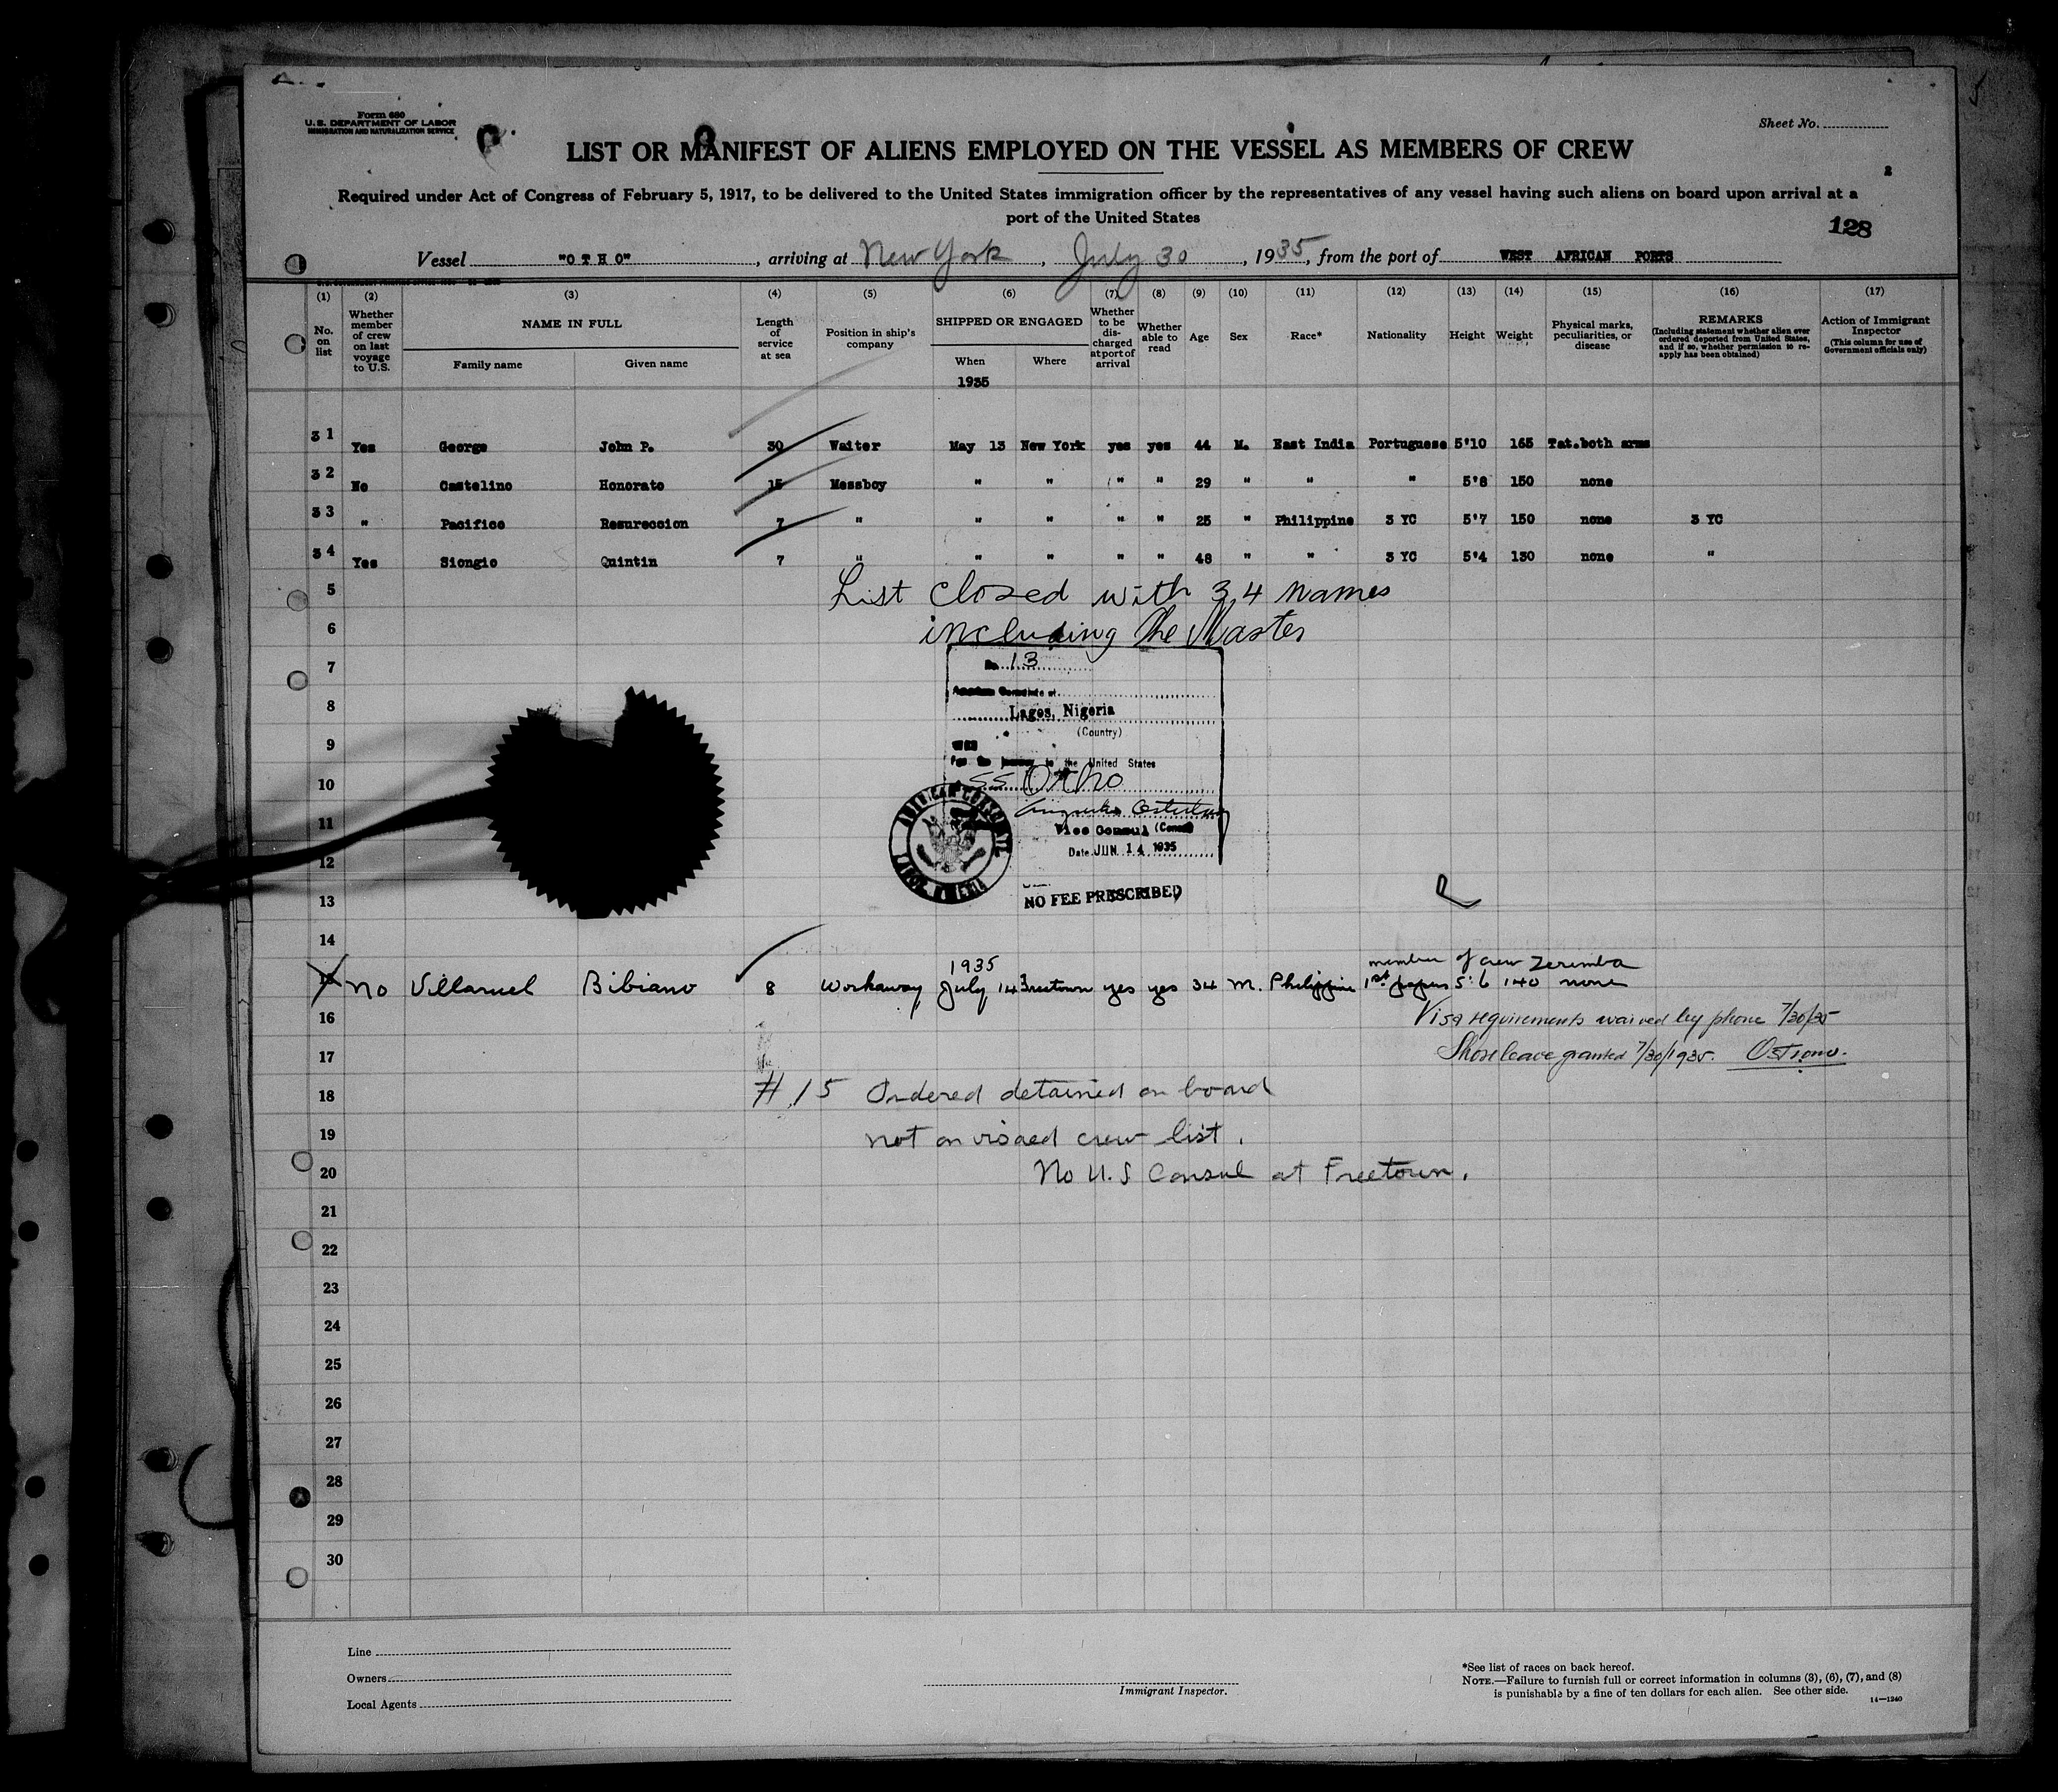 Form 680
U. S. DEPARTMENT OF LABOR
IMMIGRATION AND NATURALIZATION SERVICE
Sheet No.
LIST OR MANIFEST OF ALIENS EMPLOYED ON THE VESSEL AS MEMBERS OF CREW
2
Required under Act of Congress of February 5, 1917, to be delivered to the United States immigration officer by the representatives of any vessel having such aliens on board upon arrival at a
port of the United States
128
Vessel "O T H O", arriving at New York, July 30, 1935, from the port of WEST AFRICAN PORTS
(1) (2) (3) (4) (5) (6) (7) (8) (9) (10) (11) (12) (13) (14) (15) (16) (17)
No. on list
Whether member of crew on last voyage to U.S.
NAME IN FULL
Family name
Given name
Length of service at sea
Position in ship's company
SHIPPED OR ENGAGED
When
Where
1935
Whether to be discharged at port of arrival
Whether able to read
Age
Sex
Race*
Nationality
Height
Weight
Physical marks, peculiarities, or disease
REMARKS
(Including statement whether alien ever ordered deported from United States, and if so, whether permission to reapply has been obtained)
Action of Immigrant Inspector
(This column for use of Government officials only)
31 Yes George John P. 30 Waiter May 13 New York yes yes 44 M. East India Portuguese 5'10 165 Tat.both arms
32 No Castelino Honorato 15 Messboy " " " " 29 " " " 5'8 150 none
33 " Pacifico Resureccion 7 " " " " " 25 " Philippine 3 YC 5'7 150 none 3 YC
34 Yes Siongio Quintin 7 " " " " " 48 " " 3 YC 5'4 130 none "
5 List closed with 34 names
6 including the Master
7 No. 13
American Consulate at
8 Lagos, Nigeria
(Country)
9
For the journey to the United States
10 SS Otho
11
Vice Consul (Consul)
Date JUN 14 1935
AMERICAN CONSULATE
LAGOS, NIGERIA
12
13 NO FEE PRESCRIBED
14
1935
member of crew Zeremba
No Villaruel Bibiano 8 Workaway July 14 Freetown yes yes 34 M. Philippine 1st papers 5'6 140 none
16 Visa requirements waived by phone 7/30/35
17 Shore leave granted 7/30/1935.
18 #15 Ordered detained on board
19 not on visaed crew list.
20 No U.S Consul at Freetown.
21
22
23
24
25
26
27
28
29
30
Line
Owners
Local Agents
Immigrant Inspector.
*See list of races on back hereof.
NOTE.—Failure to furnish full or correct information in columns (3), (6), (7), and (8)
is punishable by a fine of ten dollars for each alien. See other side.
14—1240